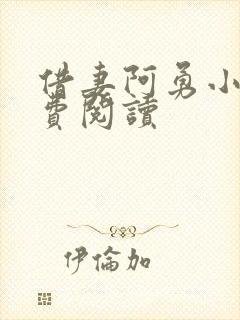 借妻阿勇小
費閱讀
伊倫加